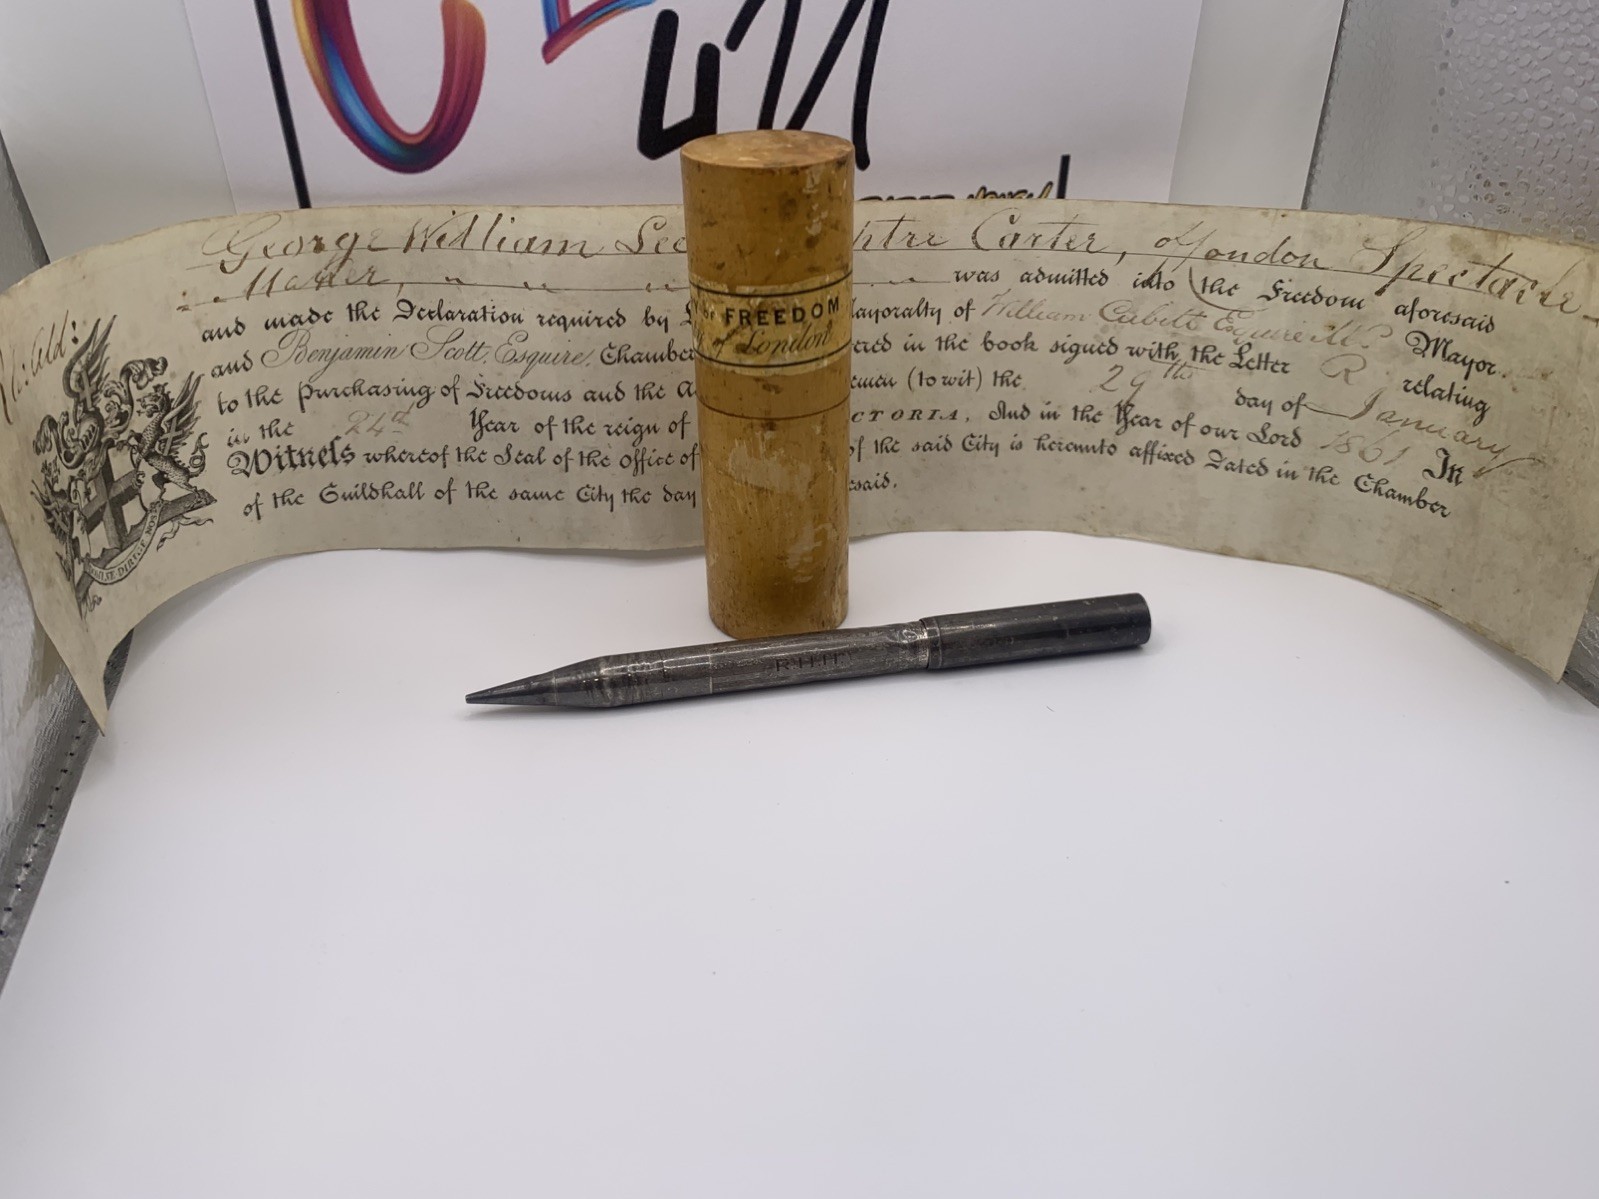 George William Lee htre Carter, of London Spectacle
Maker, was admitted into the Freedom aforesaid
and made the Declaration required by L ayoralty of William Cubitt Esquire M.P. Mayor
and Benjamin Scott, Esquire, Chamber ered in the book signed with the Letter R relating
to the Purchasing of Freedoms and the A emen (to wit) the 29th day of January
in the 24th Year of the reign of CTORIA, And in the Year of our Lord 1861 In
Witness whereof the Seal of the Office of of the said City is hereunto affixed Dated in the Chamber
of the Guildhall of the same City the day esaid.
DIRIGE NOS
FREEDOM
of London